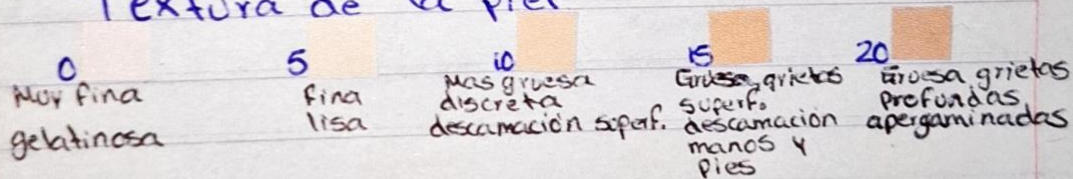 Textura de la piel
0 5 10 15 20
Muy fina
gelatinosa
fina
lisa
Mas gruesa
discreta
descamación superf.
Gruesa, grietas
superf.
descamación
manos y
pies
Gruesa grietas
profundas
apergaminadas